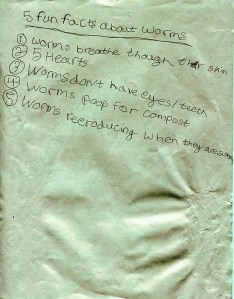 5 fun facts about worms
① worms breathe though thır skin
② 5 Hearts
③ Worms don't have eyes/teeth
④ Worms poop for compost
⑤ Worms reeroducing when they are